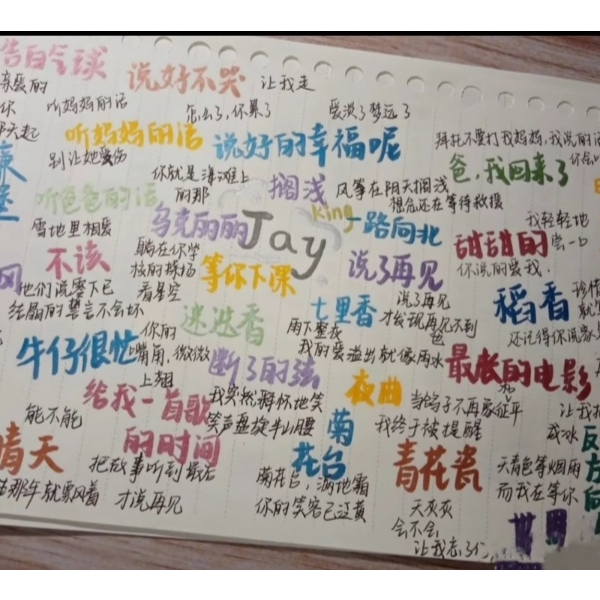 告白气球
说好不哭
让我走
亲爱的
听妈妈的话
怎么了,你累了
爱淡了梦远了
听妈妈的话
说好的幸福呢
拜托不要打我妈妈,我说的话
别让她受伤
爸,我回来了
你就是海滩上
的那
听爸爸的话
搁浅
风筝在阴天搁浅
想念还在等待救援
乌克丽丽
King
Jay
一路向北
我轻轻地
尝一口
甜甜的
你说的爱我.
雪地里相爱
不该
躺在你学
校的操场
看星空
等你下课
说了再见
他们说零下已
结晶的誓言不会坏
七里香
说了再见
才发现再见不到
稻香
还记得你说家
迷迭香
你的
嘴角,微微
上翘
雨下整夜
我的爱溢出就像雨水
牛仔很忙
断了的弦
夜曲
最伤的电影
给我一首歌
的时间
我突然释怀地笑
笑声盘旋半山腰
当鸽子不再象征
和平
我终于被提醒
能不能
晴天
把故事听到最后
才说再见
菊
花台
菊花台,满地霜
你的笑容已泛黄
青花瓷
天青色等烟雨
而我在等你
反
方
向
就飘着
天灰灰
会不会
让我忘了